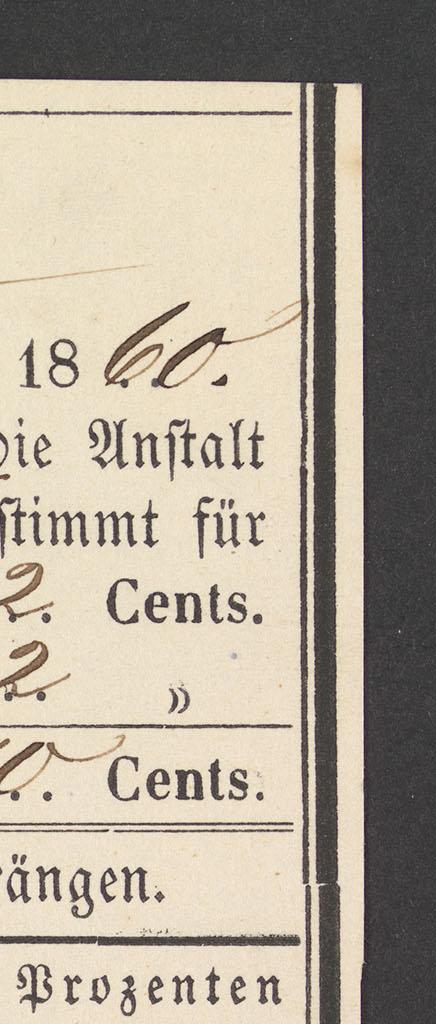 1860.
Die Anstalt
stimmt für
2. Cents.
2. »
0.. Cents.
rängen.
Prozenten